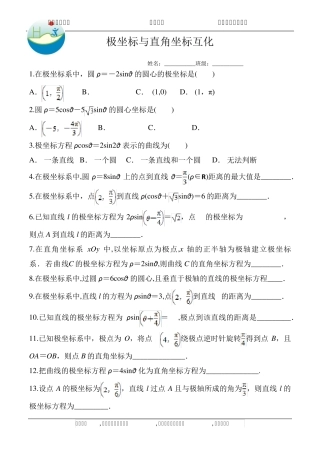 极坐标与直角坐标互化
姓名：__________班级：__________
1.在极坐标系中,圆 ρ＝－2sinθ 的圆心的极坐标是( )
A．(1, π/2) B． C． (1,0) D． (1，π)
2.圆 ρ＝5cosθ－5 sinθ 的圆心坐标是( )
A．(－5, －4π/3) B． C． D．
3.极坐标方程 ρcosθ＝2sin2θ 表示的曲线为( )
A． 一条直线 B． 一个圆 C． 一条直线和一个圆 D． 无法判断
4.在极坐标系中,圆 ρ＝8sinθ 上的点到直线 θ＝π/3(ρ∈R)距离的最大值是________．
5.在极坐标系中，点(2, π/6)到直线 ρ(cosθ＋ sinθ)＝6 的距离为________．
6.已知直线 l 的极坐标方程为 2ρsin(θ－π/4)＝√2，点 的极坐标为 ，
则点 A 到直线 l 的距离为________．
7.在直角坐标系 xOy 中,以坐标原点为极点,x 轴的正半轴为极轴建立极坐标
系.若曲线C的极坐标方程为 ρ＝2sinθ,则曲线 C 的直角坐标方程为________．
8.在极坐标系中,过圆 ρ＝6cosθ 的圆心,且垂直于极轴的直线的极坐标方程____．
9.在极坐标系中,直线 l 的方程为 ρsinθ＝3,点(2, π/6)到直线 的距离为________．
10.已知直线的极坐标方程为 ρsin(θ＋π/4)＝ ,极点到该直线的距离是________．
11.已知极坐标系中，极点为 O，将点 (4, π/6)绕极点逆时针旋转π/4得到点 B，且
OA＝OB，则点 B 的直角坐标为________．
12.把曲线的极坐标方程 ρ＝4sinθ 化为直角坐标方程为________．
13.设点 A 的极坐标为(2, π/6)，直线 l 过点 A 且与极轴所成的角为π/3，则直线 l 的
极坐标方程为________．